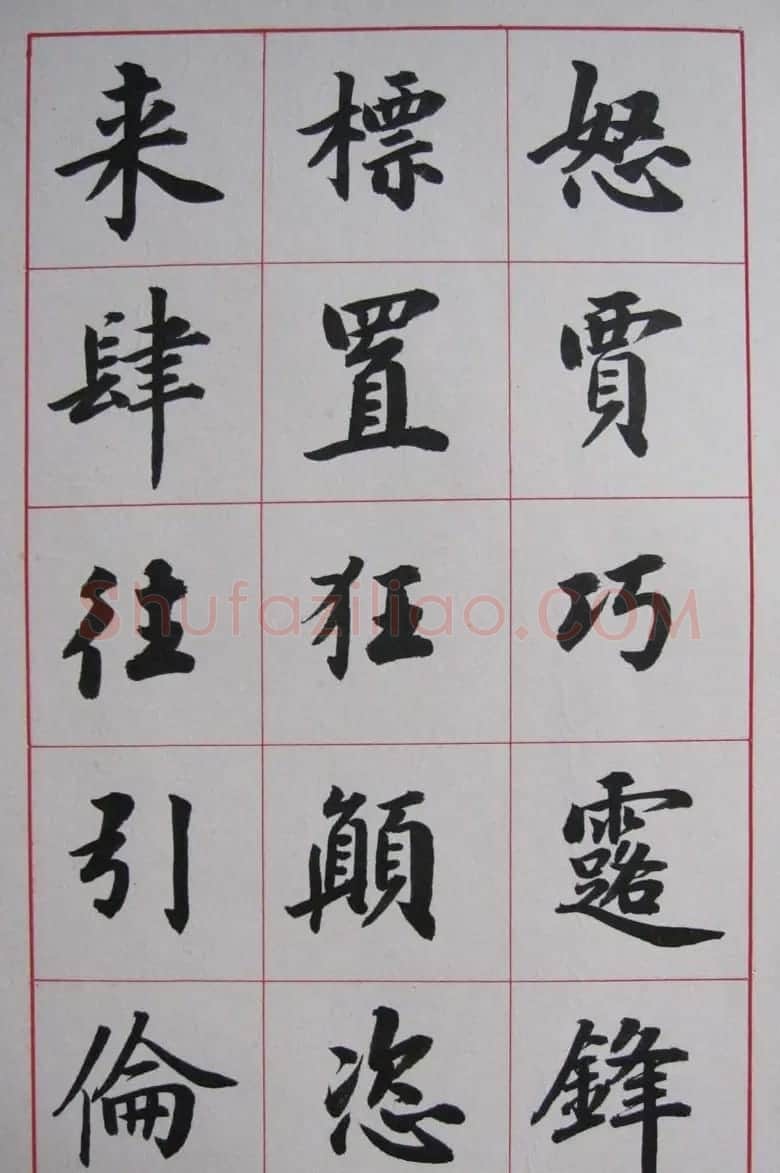 怒賈巧露鋒
標置狂顛恣
来肆往引倫
Shufaziliao.COM